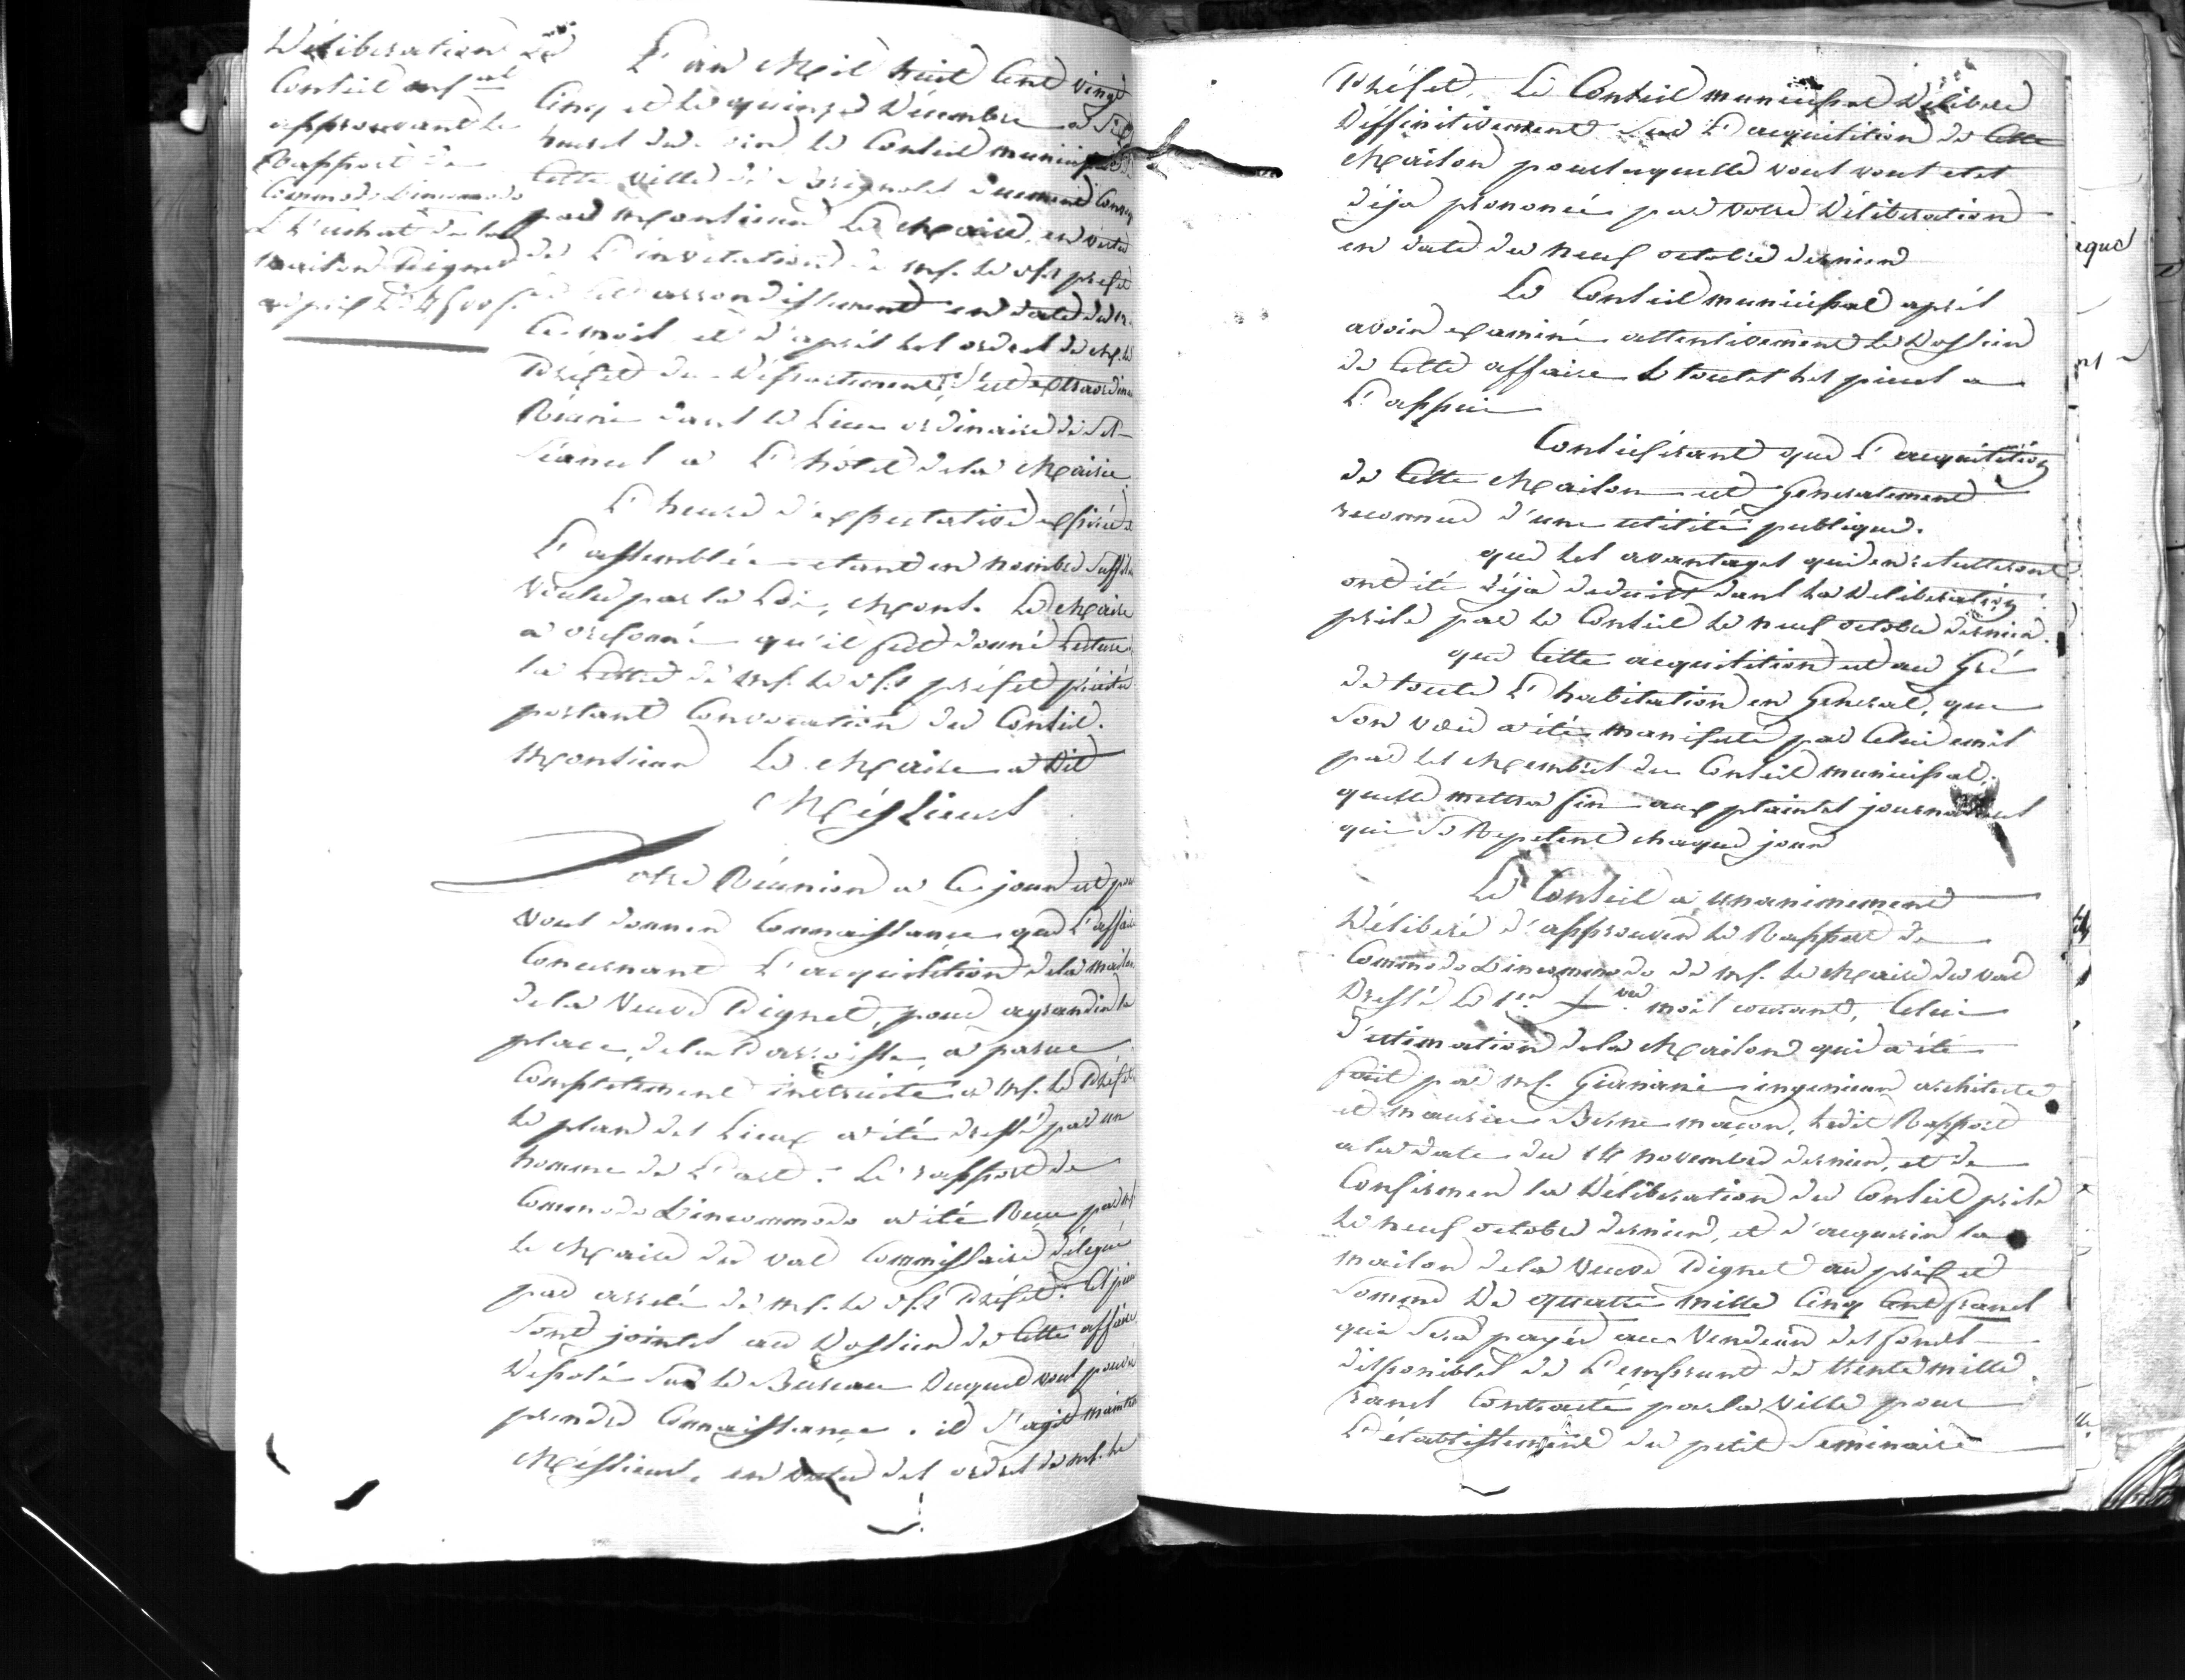 Déliberation du
Conseil mpal
approuvant le
Rapport de
Commodo & incomodo
& L'achat de la
maison Pignet
au prix de 4500 f.
L'an Mil huit Cent vingt
Cinq et le quinze Décembre à six
heures du soir le Conseil municipal de
Cette ville de Brignoles dument Convoq
par Monsieur Le Maire, en vertu
de L'invitation de mr. le ss préfet
de L'arrondissement en date du
Ce mois et d'après les ordres de mr. le
Préfet du Département, s'est extraordin
Réuni dans le Lieu ordinaire de ses
séances a L'hôtel de la Mairie.
L'heure d'expectative expirée &
L'assemblée etant en nombre suffis
voulu par la Loi, Mons. Le Maire
a ordonné qu'il fut donné Lecture
la Lettre de mr. le ss préfet précitée
portant Convocation du Conseil.
Monsieur Le Maire a dit
Messieurs
Votre Réunion a Ce jour est pour
vous donner Connaissance que L'affaire
Concernant L'acquisition de la maison
de la Veuve Pignet, pour agrandir la
place de la Parroisse, a parue
Complettement instruite a mr. le Préfet
le plan des Lieux a été dressé par un
homme de L'art : Le rapport de
Commodo & incommodo a été Reçu par mr.
le Maire du val Commissaire délégué
par arrêté de mr. le ss Préfet : Ces pièces
sont jointes au Dossier de Cette affaire
Déposé sur le Bureau Duquel vous pouvés
prendre Connaissance . il s'agit mainten
Messieurs, en vertu des ordres de mr. le
Préfet, Le Conseil municipal Délibere
Deffinitivement sur L'acquisition de Cette
Maison pour laquelle vous vous etes
déja prononcé par votre Déliberation
en date du neuf octobre dernier
Le Conseil municipal après
avoir examiné attentivement le Dossier
de Cette affaire & toutes les pieces a
L'appui
Considerant que L'acquisition
de Cette Maison est Generalement
reconnue d'une utilité publique.
que les avantages qui en resulteront
ont été déja deduits dans la Deliberation
prise par le Conseil le neuf octobre dernier.
que Cette acquisition est au Gré
de toute L'habitation en General, que
son vœu a été manifesté par Celui emis
par les Membres du Conseil municipal,
quelle mettra fin aux plaintes journalieres
qui se Repetent chaque jour
Le Conseil a unanimement
Déliberé d'approuver le Rapport de
Commodo & incommodo de mr. le Maire du val
Dressé le 1er du mois courant, Celui
d'estimation de la Maison qui a été
fait par mr. Gianani ingenieur architecte
et maurice Berne maçon, ledit Rapport
a la date du 14 novembre dernier, et de
Confirmer la Déliberation du Conseil prise
le neuf octobre dernier, et d'acquerir la
maison de la Veuve Pignet au prix et
somme De quatre mille Cinq Cent francs
qui sera payée au Vendeur des fonds
disponibles de L'emprunt de trente mille
francs Contracté par la Ville pour
L'établissement du petit Seminaire